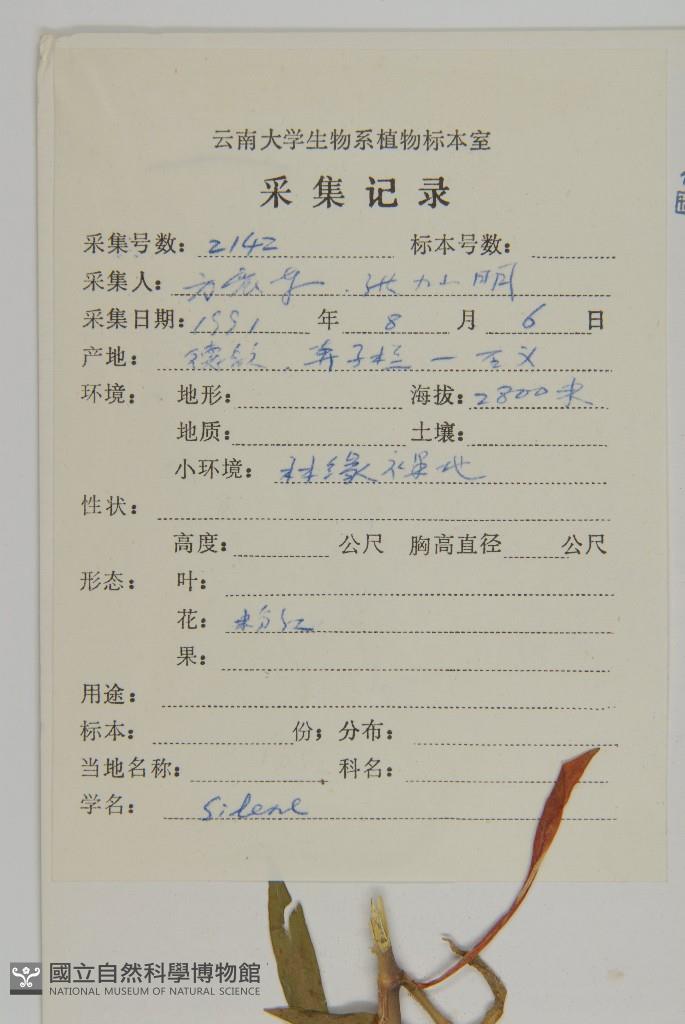 云南大学生物系植物标本室
采集记录
采集号数：2142 标本号数：
采集人：方震东．张小明
采集日期：1991 年 8 月 6 日
产地：德钦．奔子栏一
环境：地形： 海拔：2800米
地质： 土壤：
小环境：林缘裸地
性状：
高度： 公尺 胸高直径 公尺
形态：叶：
花：粉红
果：
用途：
标本： 份；分布：
当地名称： 科名：
学名：Silene
國立自然科學博物館
NATIONAL MUSEUM OF NATURAL SCIENCE